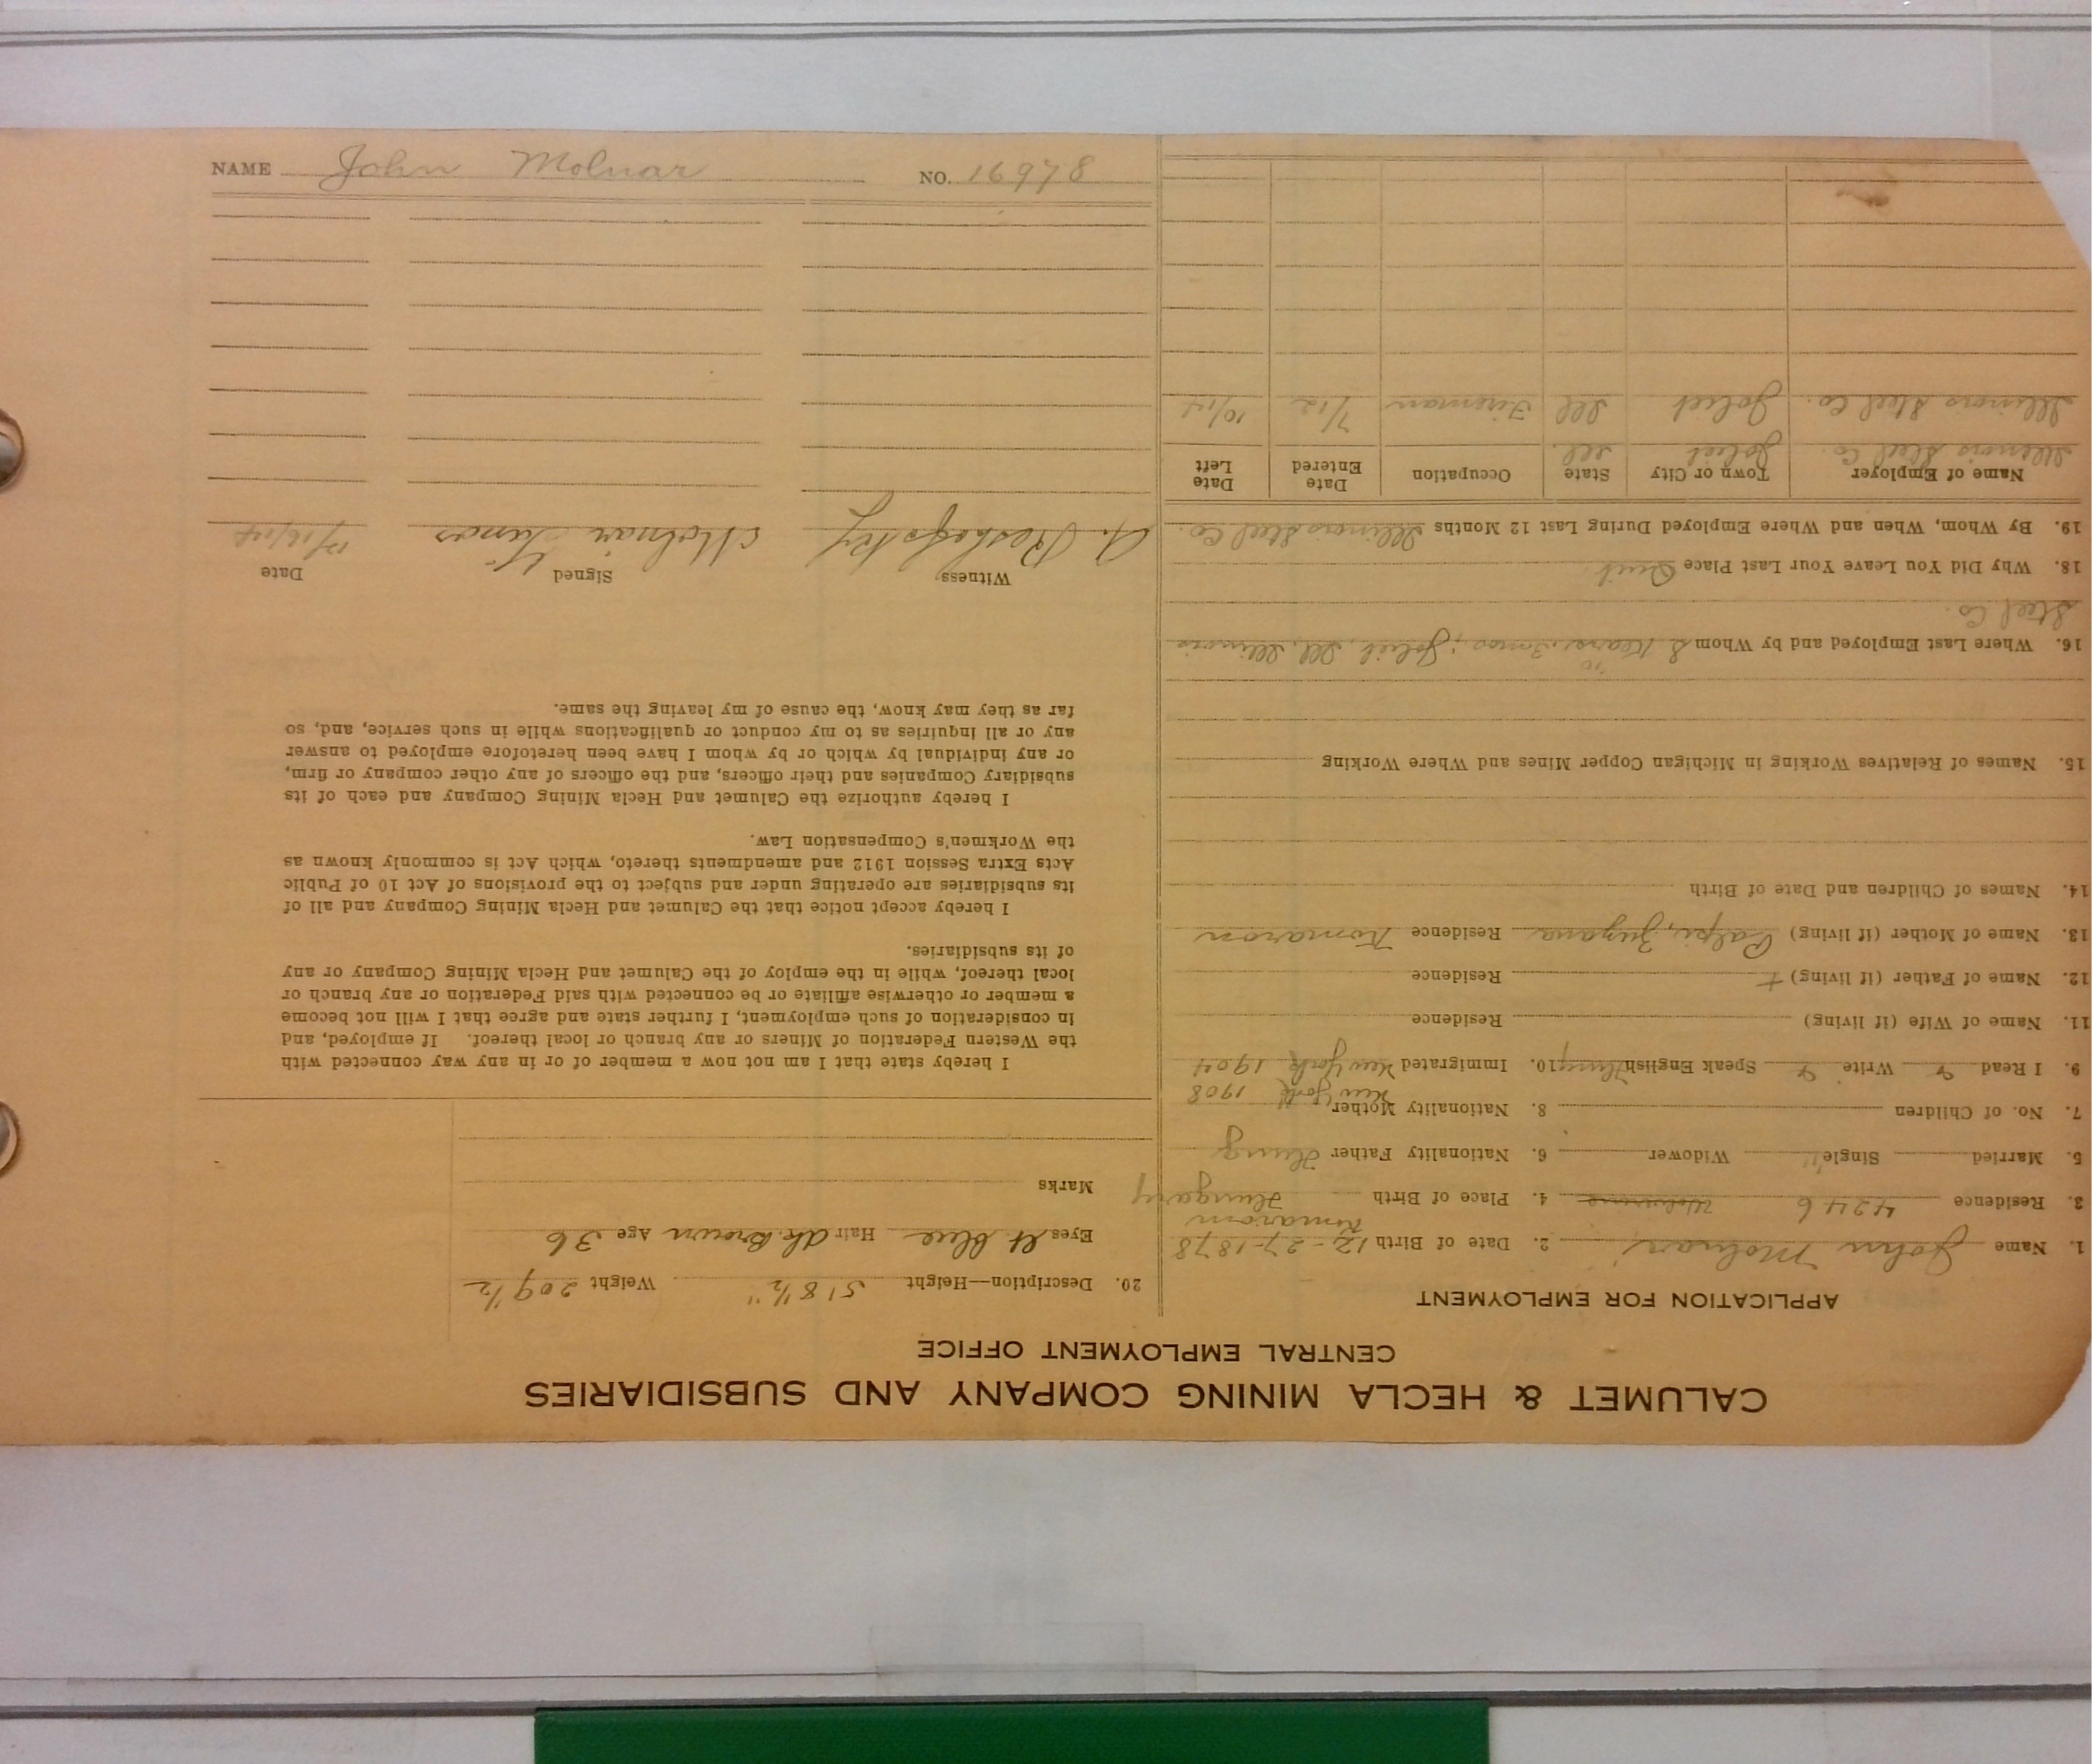 CALUMET & HECLA MINING COMPANY AND SUBSIDIARIES
CENTRAL EMPLOYMENT OFFICE
APPLICATION FOR EMPLOYMENT
1. Name John Molnar 2. Date of Birth 12-27-1878
Komarom
3. Residence 4246 4. Place of Birth Hungary
5. Married Single " Widower 6. Nationality Father Hung
7. No. of Children 8. Nationality Mother
New York 1908
9. I Read Write Speak English Hung 10. Immigrated New York 1904
11. Name of Wife (if living) Residence
12. Name of Father (if living) + Residence
13. Name of Mother (if living) Palfi, Zuzana Residence Komarom
14. Names of Children and Date of Birth
15. Names of Relatives Working in Michigan Copper Mines and Where Working
16. Where Last Employed and by Whom 2 Years, 3 mos; Joliet, Ill, Illinois
Steel Co.
18. Why Did You Leave Your Last Place Quit
19. By Whom, When and Where Employed During Last 12 Months Illinois Steel Co.
Name of Employer Town or City State Occupation Date Entered Date Left
Illinois Steel Co. Joliet Ill.
Illinois Steel Co. Joliet Ill Fireman 7/12 10/14
20. Description—Height 5' 8 1/2" Weight 209 1/2
Eyes Lt. Blue Hair dk. Brown Age 36
Marks
I hereby state that I am not now a member of or in any way connected with
the Western Federation of Miners or any branch or local thereof. If employed, and
in consideration of such employment, I further state and agree that I will not become
a member or otherwise affiliate or be connected with said Federation or any branch or
local thereof, while in the employ of the Calumet and Hecla Mining Company or any
of its subsidiaries.
I hereby accept notice that the Calumet and Hecla Mining Company and all of
its subsidiaries are operating under and subject to the provisions of Act 10 of Public
Acts Extra Session 1912 and amendments thereto, which Act is commonly known as
the Workmen's Compensation Law.
I hereby authorize the Calumet and Hecla Mining Company and each of its
subsidiary Companies and their officers, and the officers of any other company or firm,
or any individual by which or by whom I have been heretofore employed to answer
any or all inquiries as to my conduct or qualifications while in such service, and, so
far as they may know, the cause of my leaving the same.
Witness Signed Date
A. Molnar Janos 12/16/14
NAME John Molnar NO. 16978